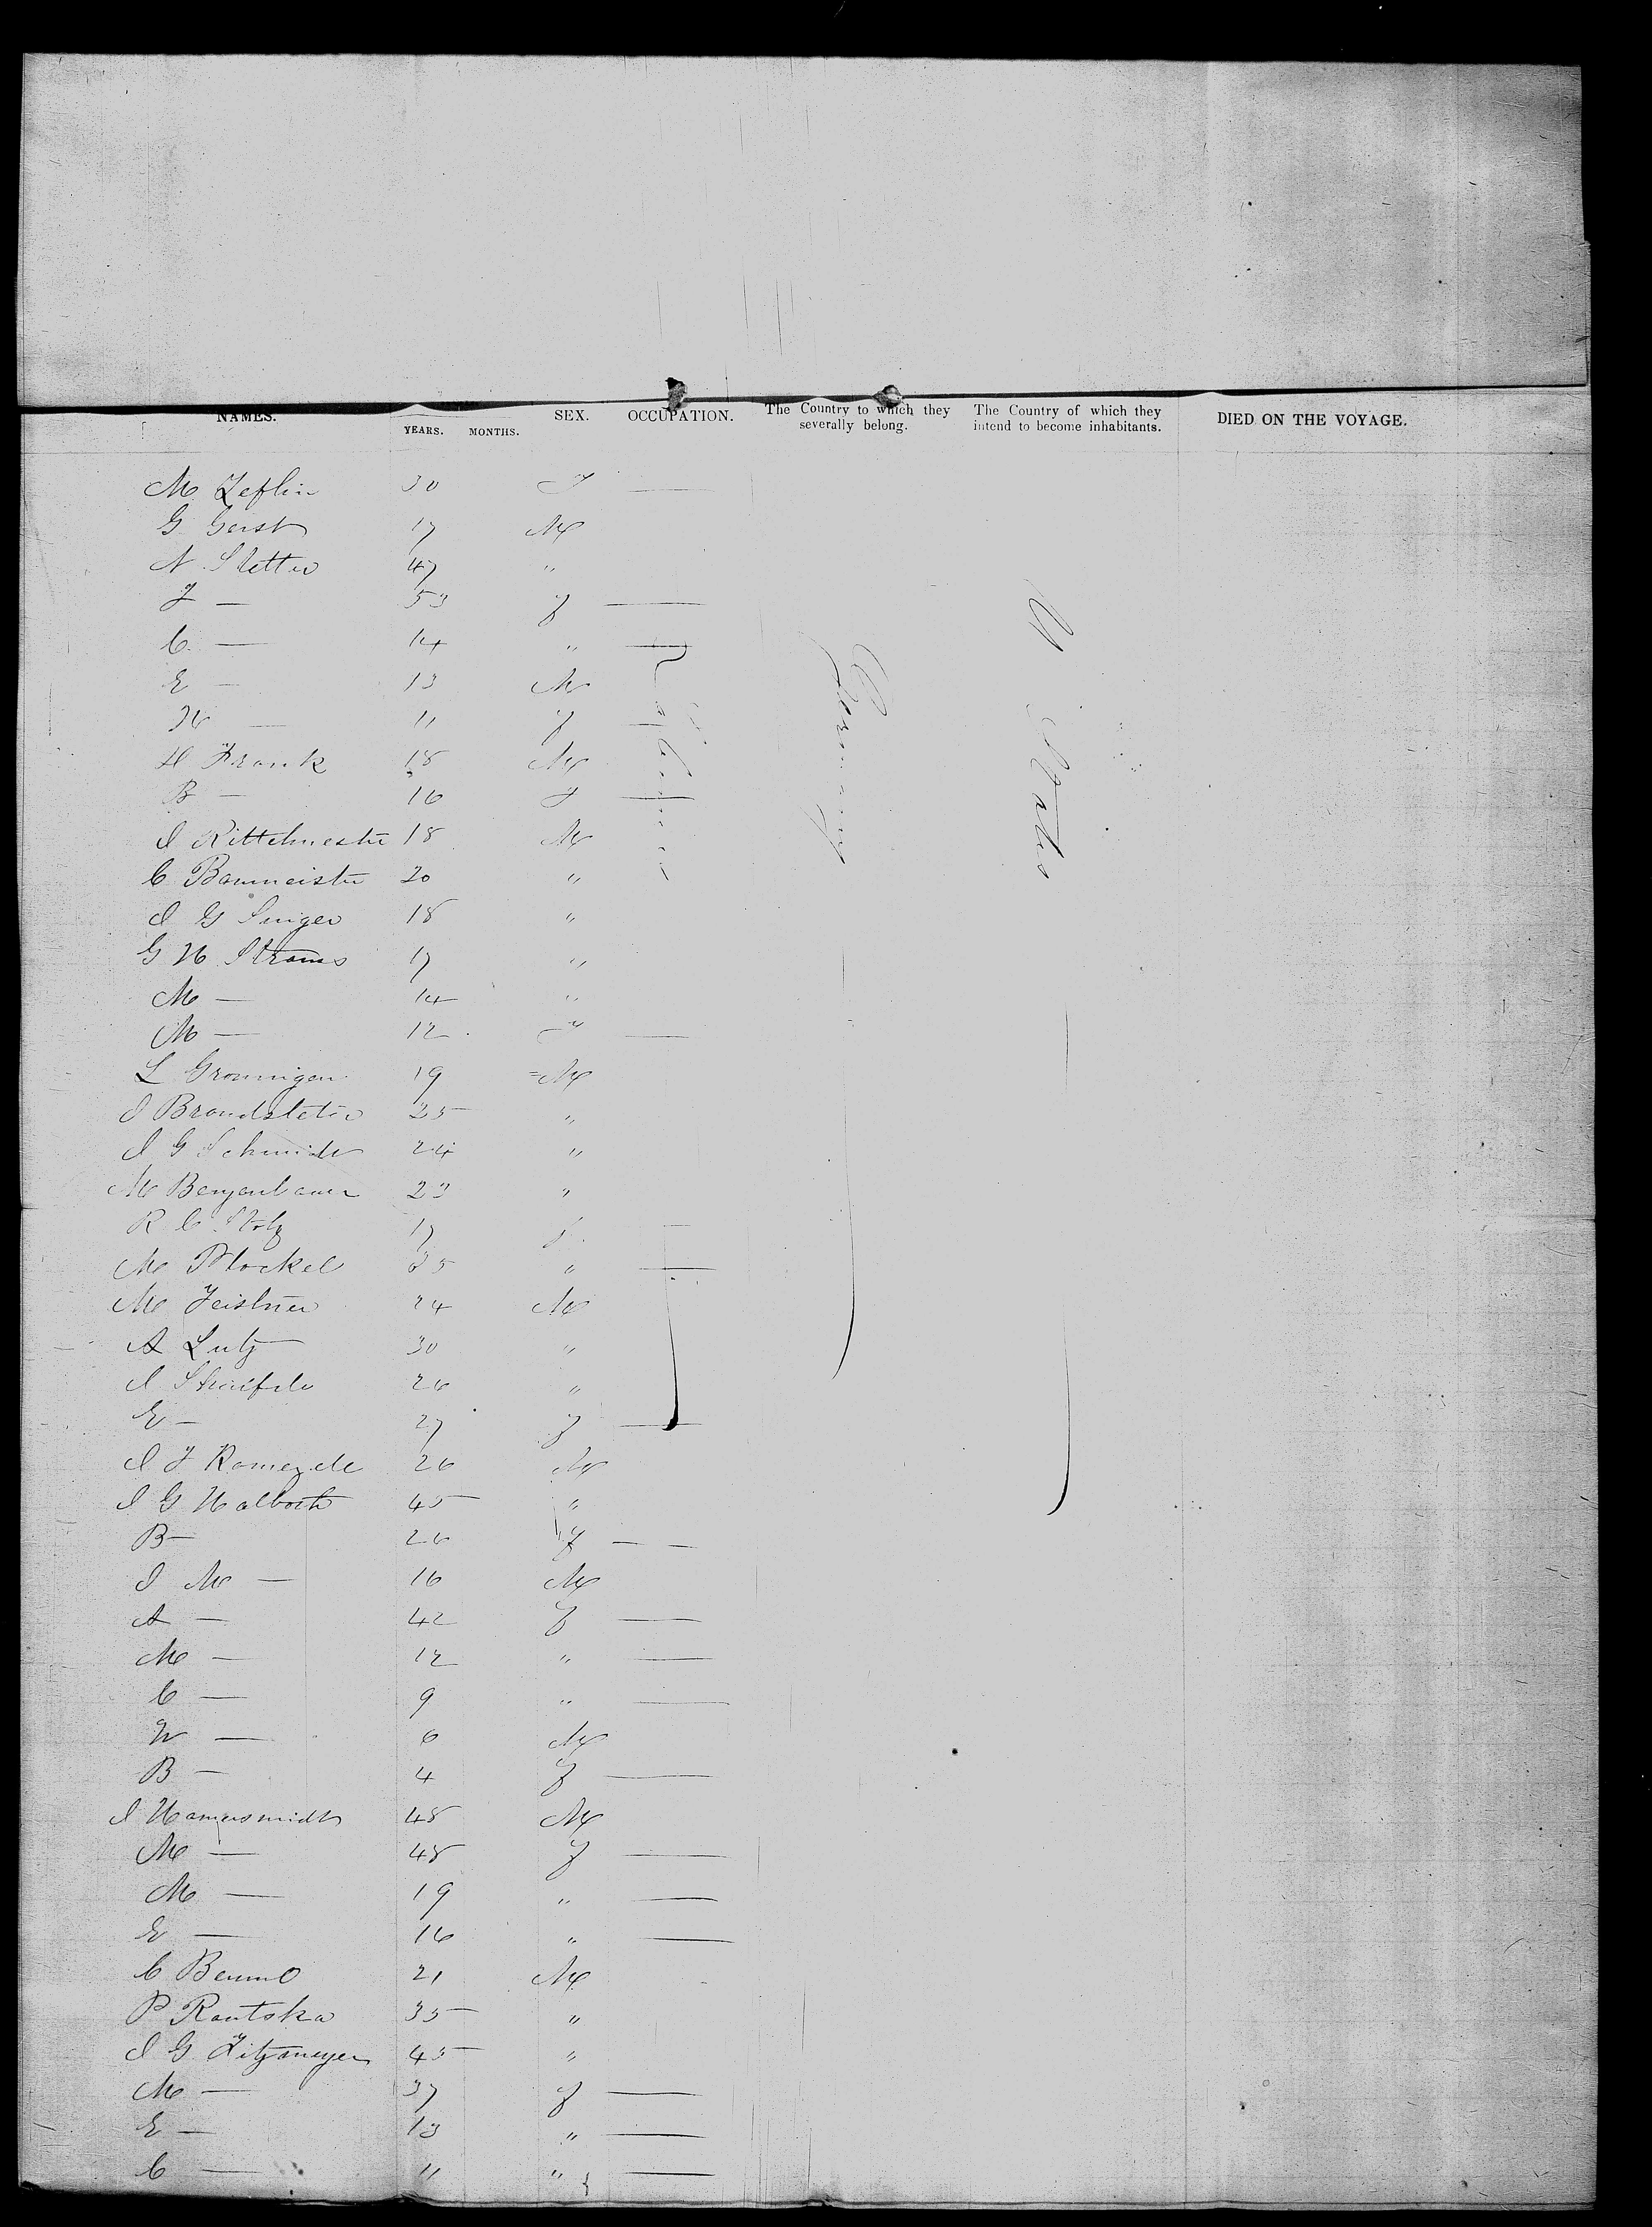 NAMES. YEARS. MONTHS. SEX. OCCUPATION. The Country to which they severally belong. The Country of which they intend to become inhabitants. DIED ON THE VOYAGE.
M Zeflin 30 F —
G Geist 17 M
N Stetter 47 "
F — 53 F —
C — 14 " —
E — 13 M
H — 11 F —
H Frank 18 M
B — 16 F —
J Rittelmester 18 M
C Baumeister 20 "
J G Singer 18 "
G H Strauss 17 "
M — 14 "
M — 12 —
L Gronnigen 19 M
J Brandstetter 25 "
J G Schmidt 24 "
M Bergenbauer 23 "
R C Stolz 17 F —
M Plockel 35 " —
M Zeistner 24 M
A Lutz 30 "
J 26 "
E — 27 F —
J F 26 M
J G Halboth 45 "
B — 26 F —
J M — 16 M
A — 42 F —
M — 12 " —
C — 9 " —
W — 6 M
B — 4 F —
J Hamersmidt 48 M
M — 48 F —
M — 19 " —
E — 16 " —
C 21 M
P Rautska 35 "
J G Fitzmeyer 45 "
M — 37 F —
E — 13 " —
C — 11 " —
Germany
U States